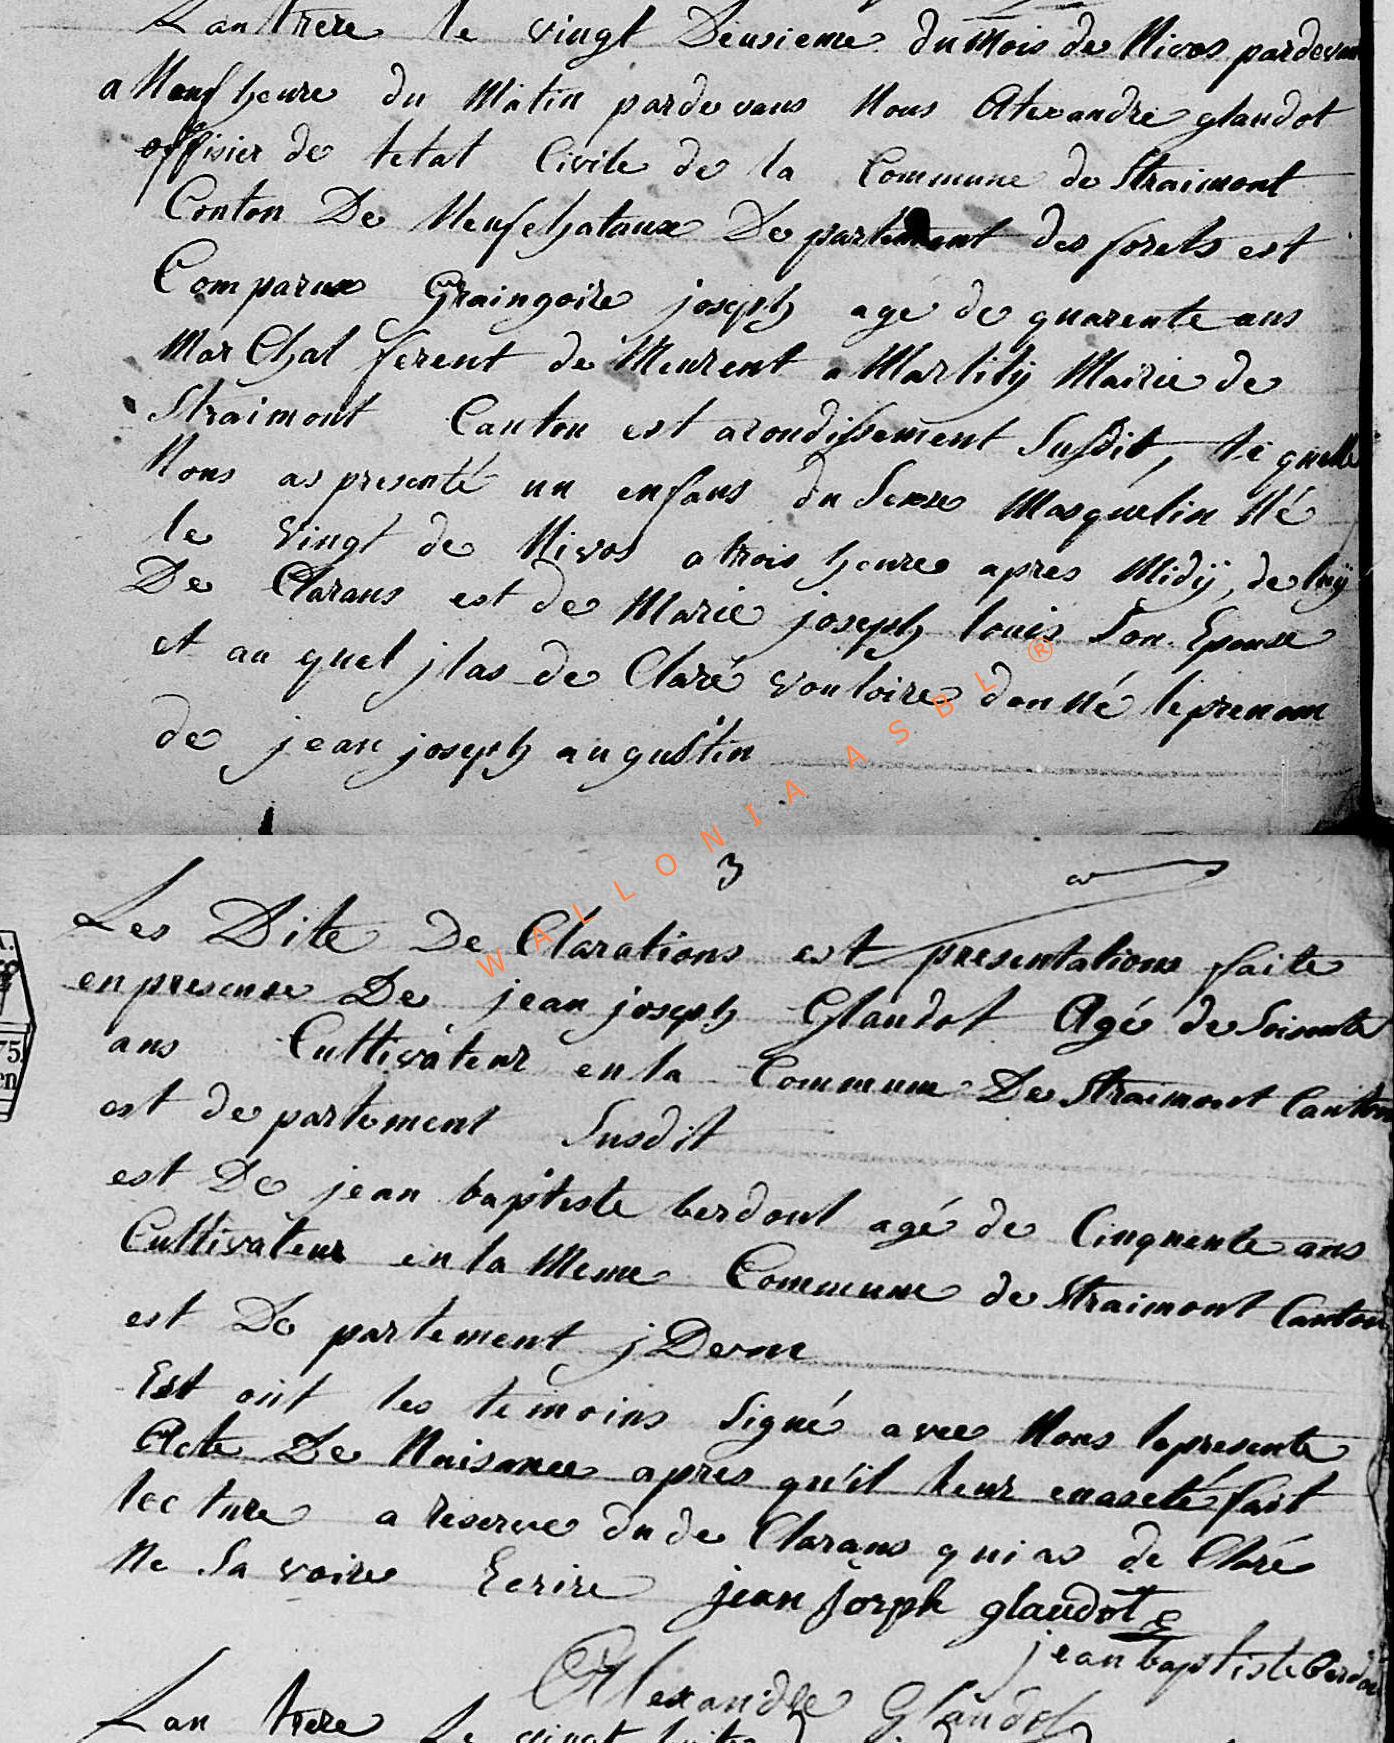 Lan treze le vingt Deusieme du Mois de Nivos pardevan
a Neuf heure du Matin parde vans Nous Alexandre glaudot
offisier de letat Civile de la Commune de Straimont
Conton De Neufchataux De partement des forets est
Comparux Graingoire joseph agé de quarente ans
Mar Chal ferent de Meurent a Martilÿ Mairie de
Straimont Canton est arondissement Susdit, le quelle
Nous as presenté un enfans du Sexe Masquelin Né
le vingt de Nivos a trois heure apres Midÿ, de luÿ
De Clarans est de Marie joseph louis Son Epouse
et au quel jlas de Claré vouloire donné leprenom
de jean joseph augustin
3
Les Dite De Clarations est presentations faite
en presense De jean joseph Glaudot Agé de Soisente
ans Cultivateur en la Commune De Straimont Canton
est de partement Susdit
est De jean baptiste berdout agé de Cinquente ans
Cultivateur en la Meme Commune de Straimont Canton
est De partement jDeme
Est ont les temoins Signé avec Nous lepresente
Acte De Naisance apres qu'il leur enaseté fait
lec ture a reserve du de Clarans qui as de Claré
Ne Sa voire Ecrire jean joseph glaudot
jean baptiste berdou
Alexandre Glaudot
Lan treze Le vingt huite
WALLONIA ASBL ®
75
en